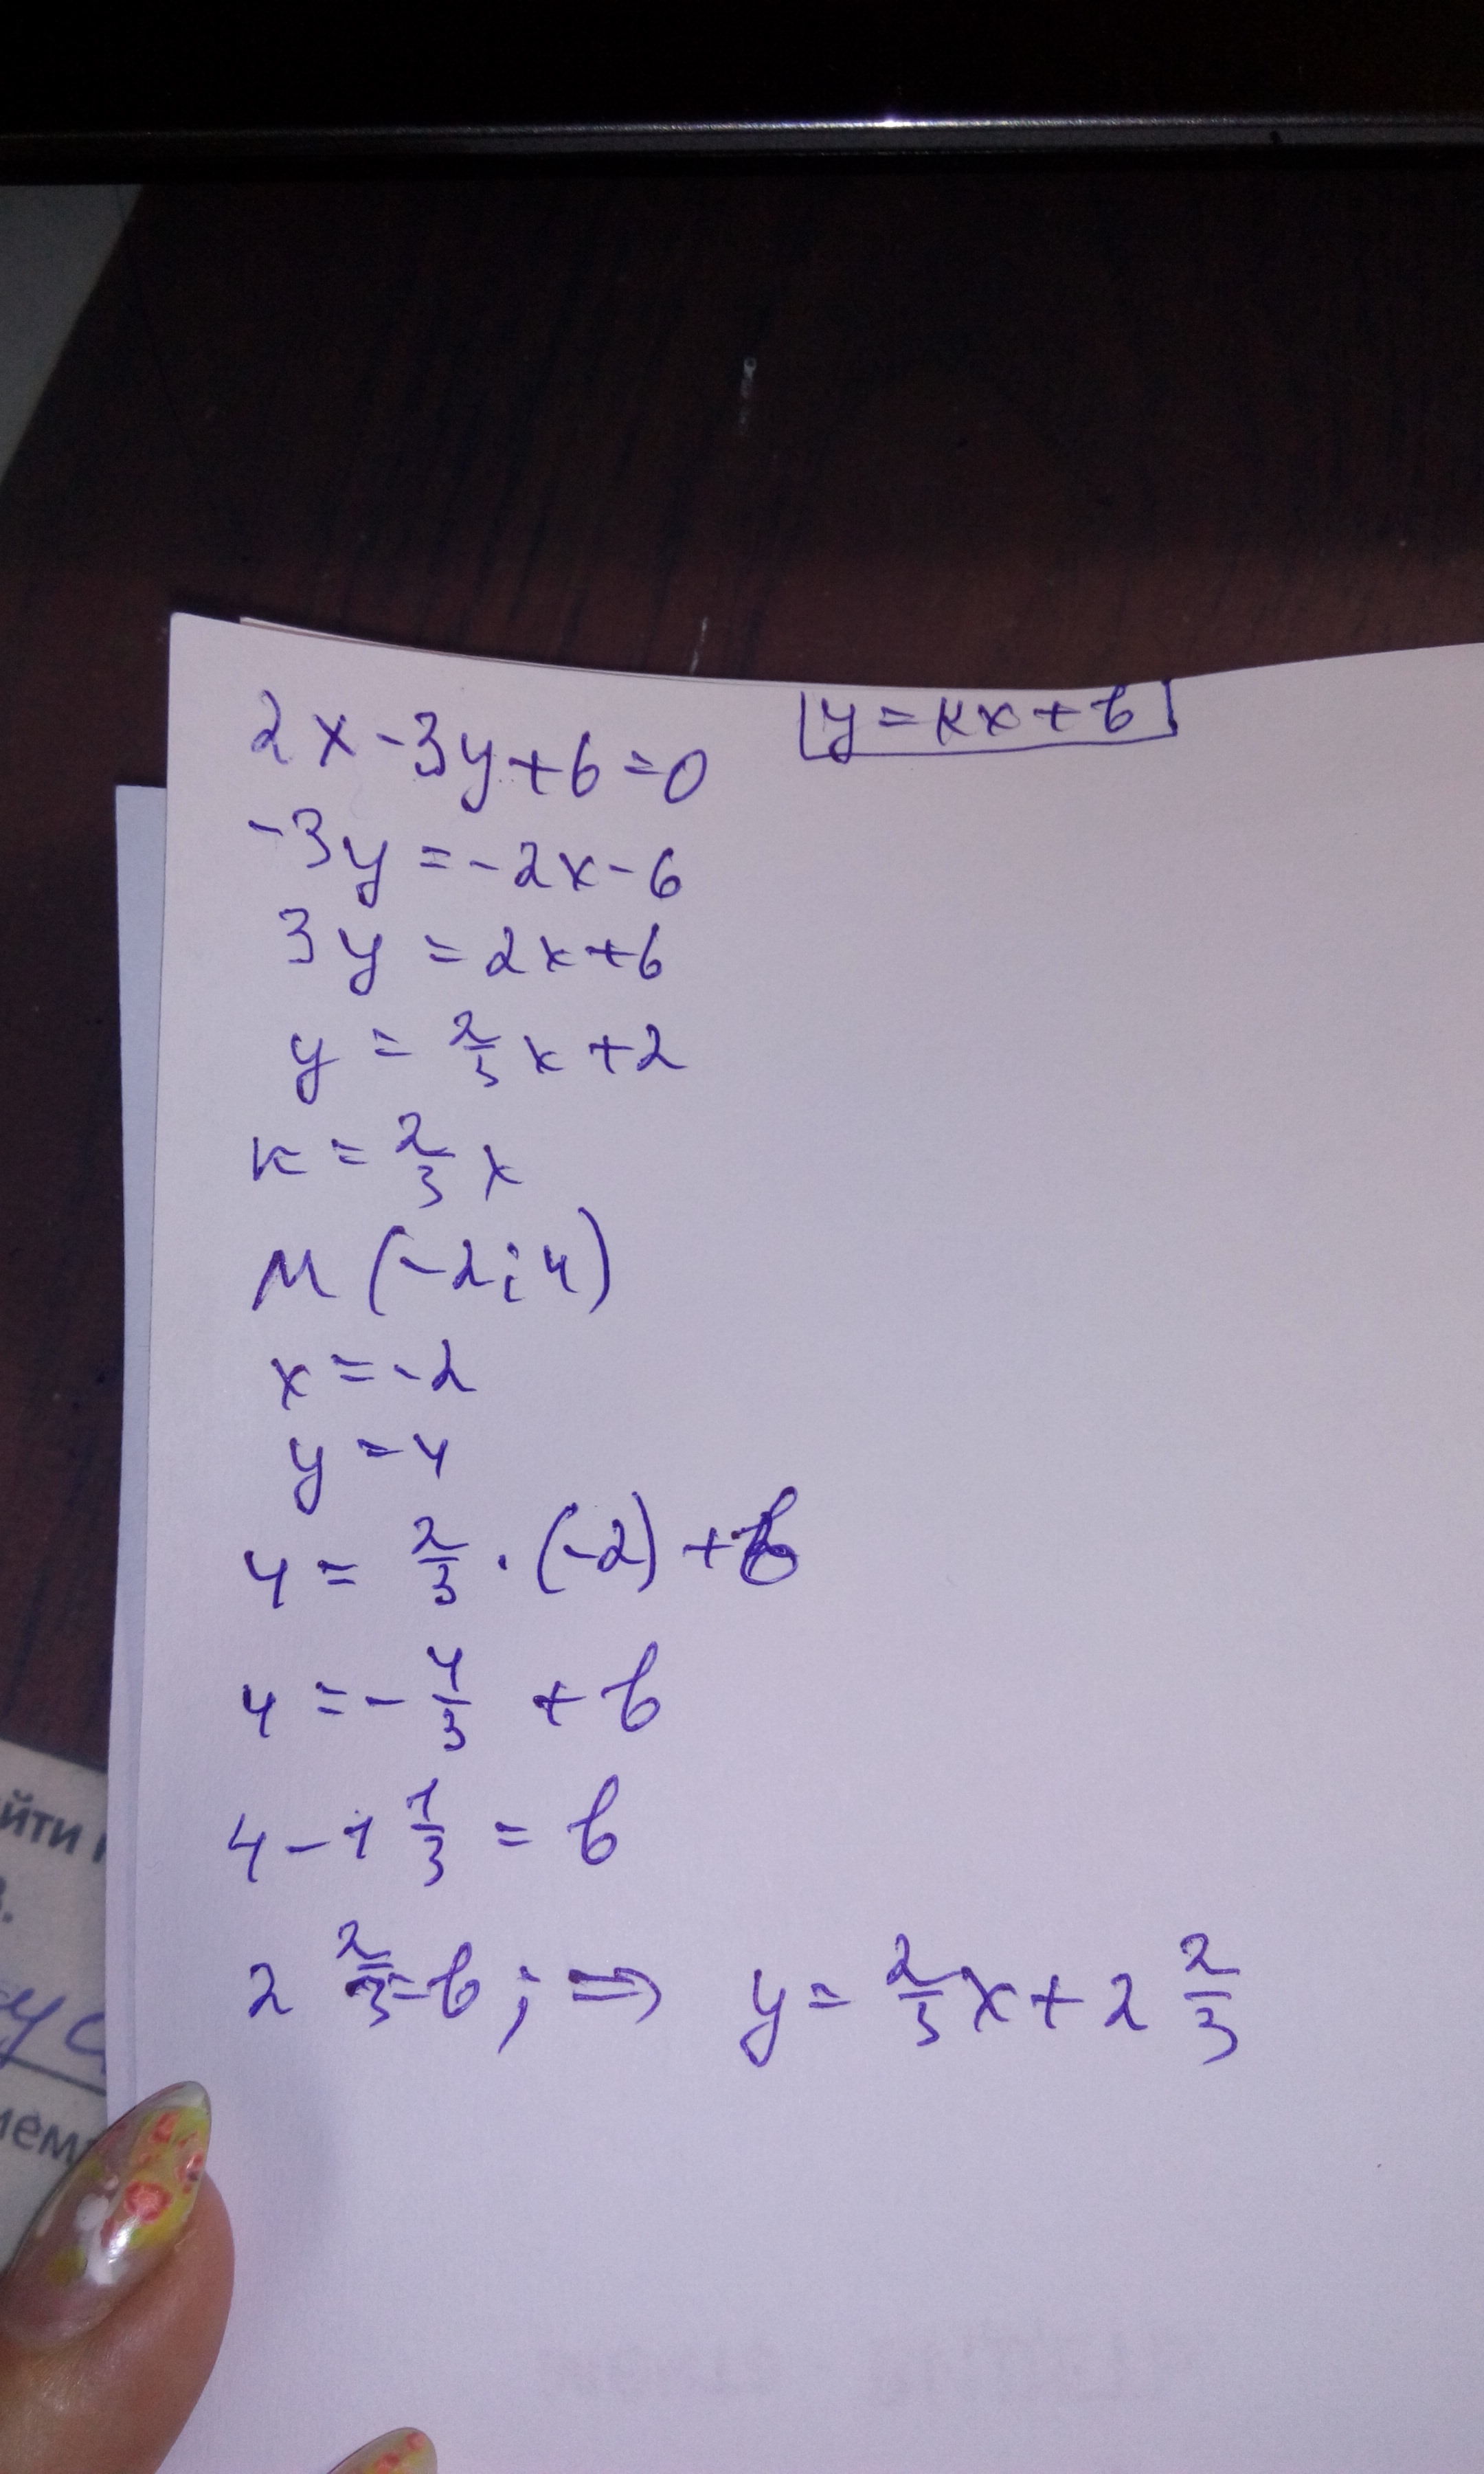 2x-3y+6=0
y=kx+b
-3y=-2x-6
3y=2x+6
y=2/3x+2
k=2/3x
M(-2;4)
x=-2
y=4
4=2/3·(-2)+b
4=-4/3+b
4-1 1/3=b
2 2/3=b; ⇒ y=2/3x+2 2/3
йти